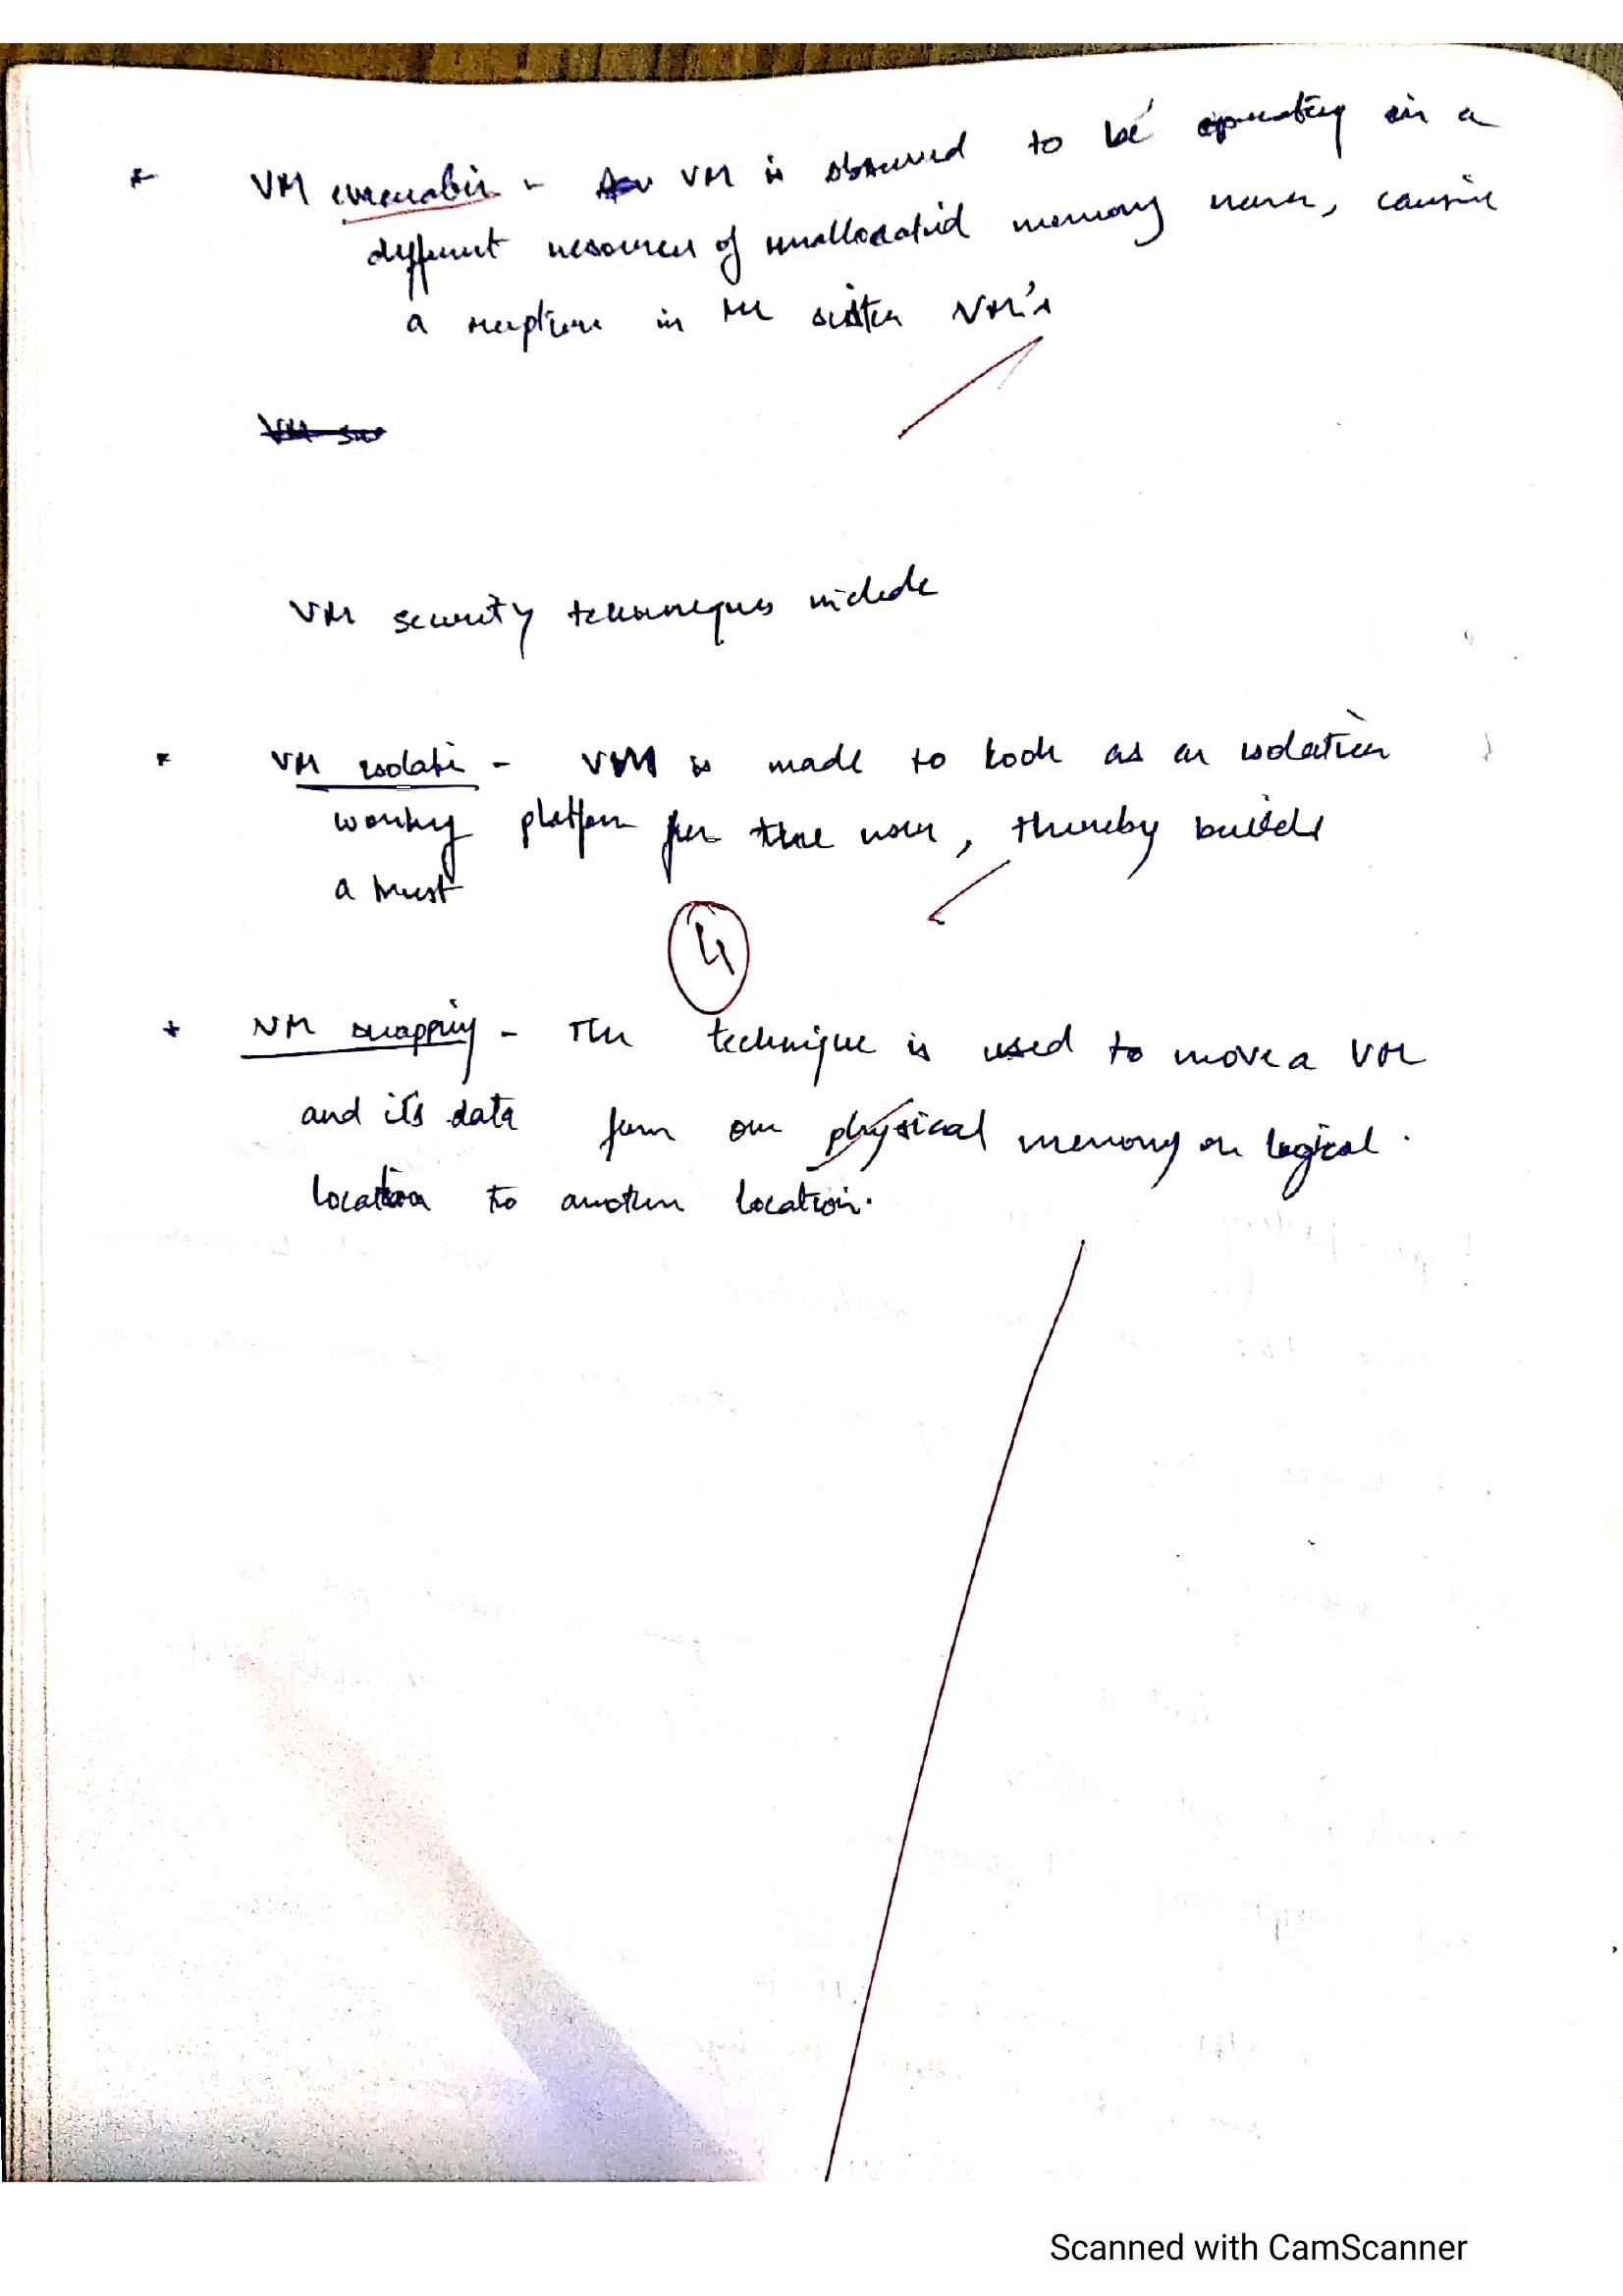 * VM - VM is observed to be operating in a
different resources of unallocated memory never, causing
a in the sister VM's
VM security techniques include
* VM isolati - VM is made to look as an isolation
working platform for the user, thereby builds
a trust
4
* VM swapping - The technique is used to move a VM
and its data from one physical memory or logical
location to another location.
Scanned with CamScanner